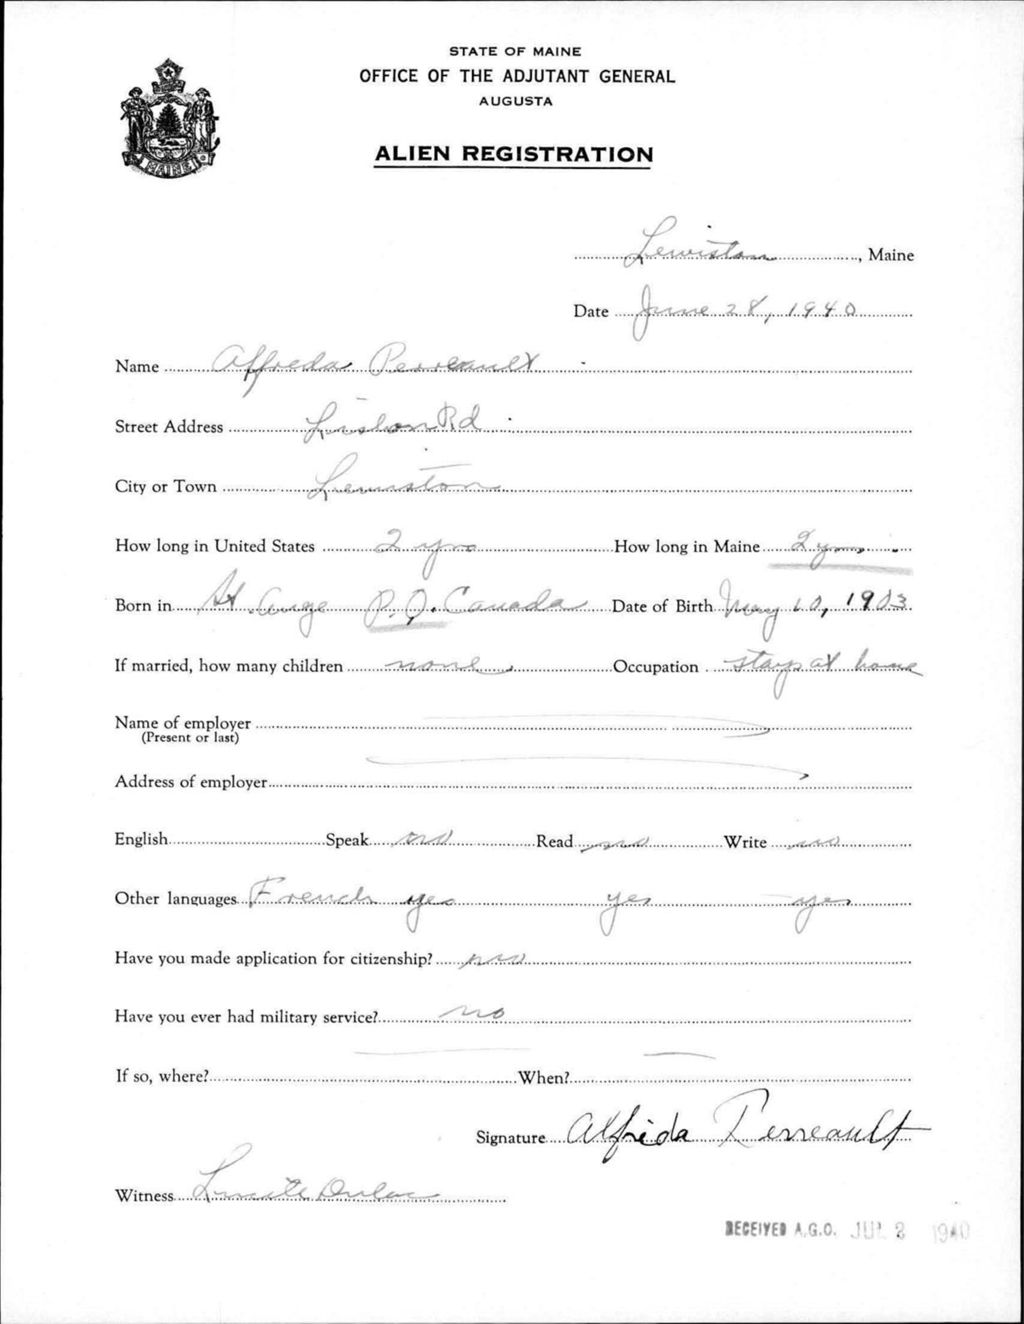 STATE OF MAINE
OFFICE OF THE ADJUTANT GENERAL
AUGUSTA
MAINE
ALIEN REGISTRATION
Lewiston, Maine
Date June 28, 1940
Name Alfreda Perreault
Street Address Lisbon Rd
City or Town Lewiston
How long in United States 2 yrs How long in Maine 2 yrs
Born in St. Ange P.Q. Canada Date of Birth May 10, 1903
If married, how many children none Occupation stays at home
Name of employer
(Present or last)
Address of employer
English Speak no Read no Write no
Other languages French yes yes yes
Have you made application for citizenship? no
Have you ever had military service? no
If so, where? When?
Signature Alfrida Perreault
Witness Dulac
RECEIVED A.G.O. JUL 2 1940